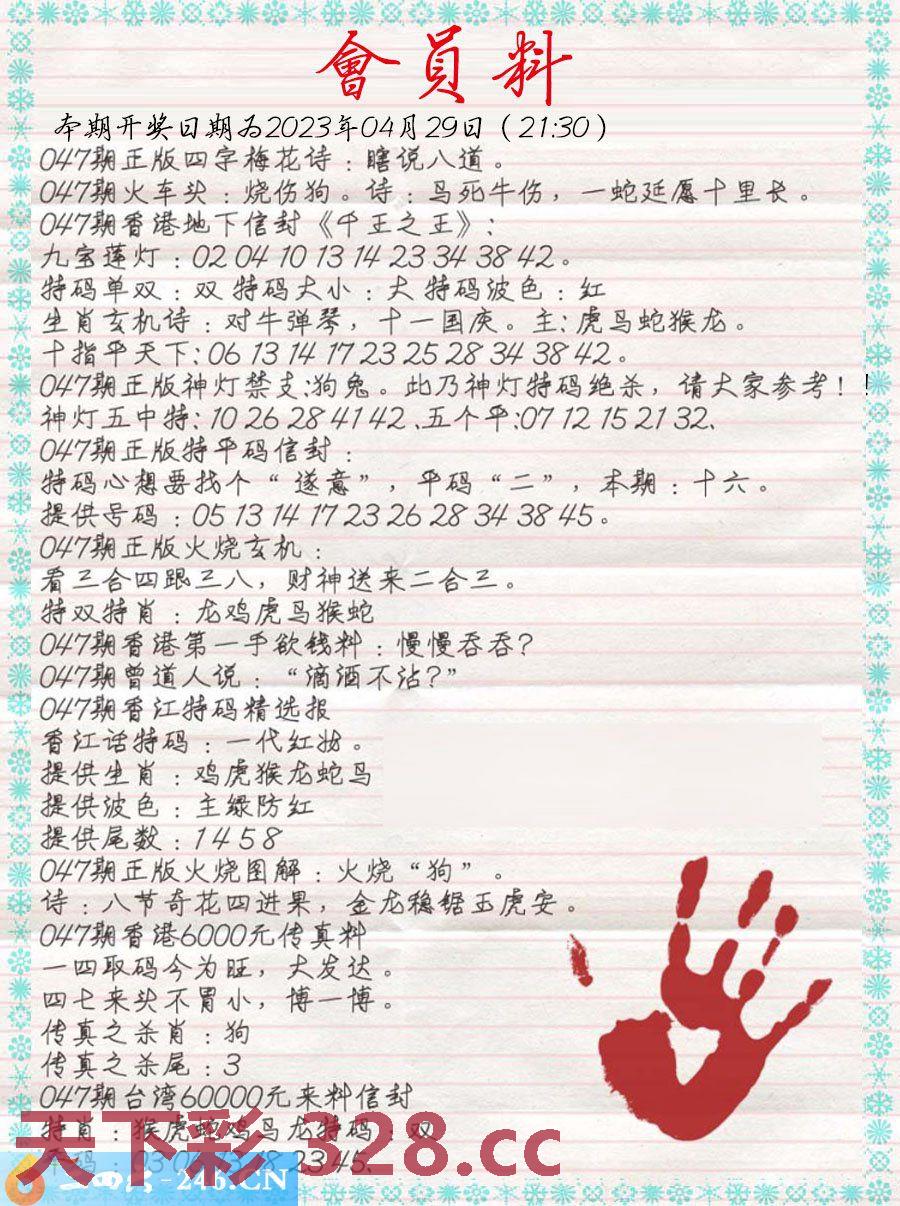 會員料
本期开奖日期为2023年04月29日（21:30）
047期正版四字梅花诗：瞎说八道。
047期火车头：烧伤狗。诗：鸟死牛伤，一蛇延愿十里长。
047期香港地下信封《千王之王》：
九宝莲灯：02 04 10 13 14 23 34 38 42。
特码单双：双 特码大小：大 特码波色：红
生肖玄机诗：对牛弹琴，十一国庆。主：虎鸟蛇猴龙。
十指平天下：06 13 14 17 23 25 28 34 38 42。
047期正版神灯禁支:狗兔。此乃神灯特码绝杀，请大家参考！！
神灯五中特：10 26 28 41 42 .五个平:07 12 15 21 32、
047期正版特平码信封：
特码心想要找个“ 遂意”，平码“二”，本期：十六。
提供号码：05 13 14 17 23 26 28 34 38 45。
047期正版火烧玄机：
看三合四跟三八，财神送来二合三。
特双特肖：龙鸡虎鸟猴蛇
047期香港第一手欲钱料：慢慢吞吞?
047期曾道人说：“滴酒不沾?”
047期香江特码精选报
香江话特码：一代红妝。
提供生肖：鸡虎猴龙蛇鸟
提供波色：主绿防红
提供尾数：1 4 5 8
047期正版火烧图解：火烧“狗”。
诗：八节奇花四进果，金龙稳锯玉虎安。
047期香港6000元传真料
一四取码今为旺，大发达。
四七来头不胃小，博一博。
传真之杀肖：狗
传真之杀尾：3
047期台湾60000元来料信封
特肖：猴虎蛇鸡鸟龙特码：双
天下彩 328.cc
23 45、
-246.CN